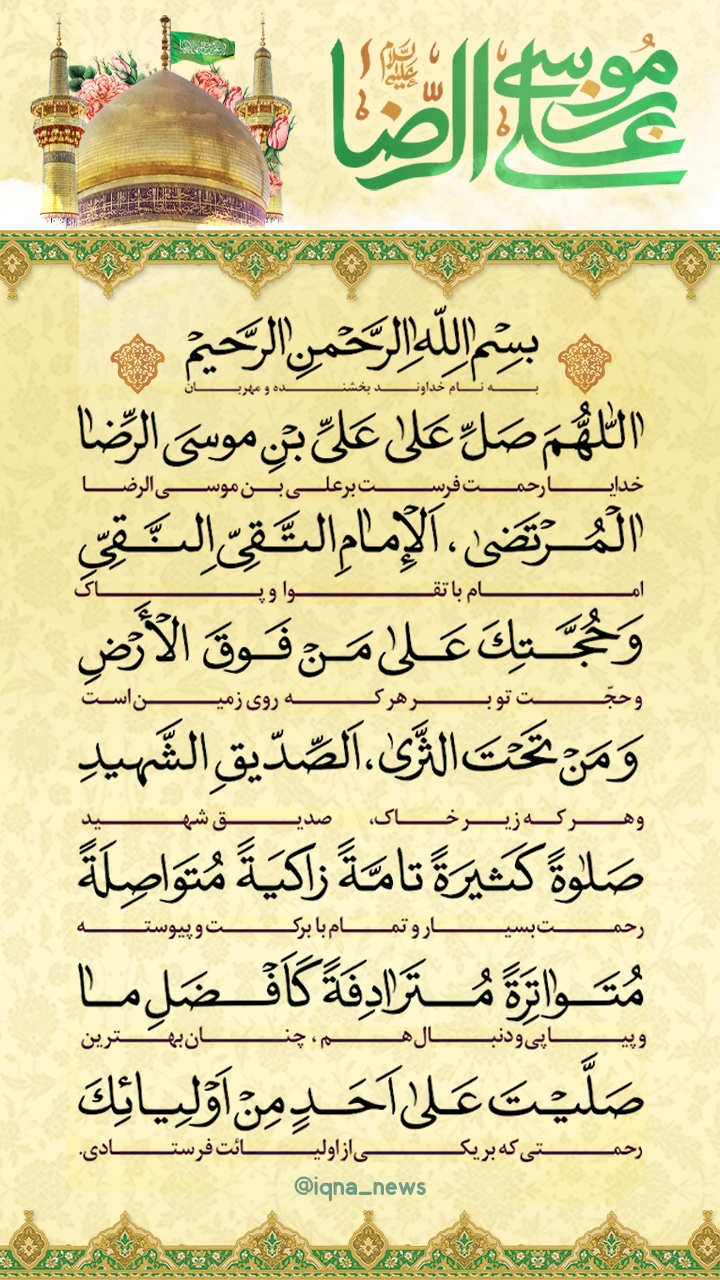 علی بن موسی الرضا علیه السلام
بِسْمِ اللّٰهِ الرَّحْمٰنِ الرَّحیمْ
به نام خداوند بخشنده و مهربان
اَللّٰهُمَّ صَلِّ عَلیٰ عَلیِّ بْنِ موسَی الرِّضَا
خدایا رحمت فرست بر علی بن موسی الرضا
الْمُرْتَضیٰ، اَلْإِمامِ التَّقِیِّ النَّقِیِّ
امام با تقوا و پاک
وَحُجَّتِكَ عَلیٰ مَنْ فَوقَ الْأَرْضِ
و حجّت تو بر هر که روی زمین است
وَ مَنْ تَحْتَ الثَّریٰ، اَلصِّدّیقِ الشَّهیدِ
و هر که زیر خاک، صدیق شهید
صَلوٰةً كَثیرَةً تامَّةً زاكیَةً مُتَواصِلَةً
رحمت بسیار و تمام با برکت و پیوسته
مُتَواتِرَةً مُتَرادِفَةً كَاَفْضَلِ ما
و پیاپی و دنبال هم، چنان بهترین
صَلَّیْتَ عَلیٰ اَحَدٍ مِنْ اَوْلِیائِكَ
رحمتی که بر یکی از اولیائت فرستادی.
@iqna_news